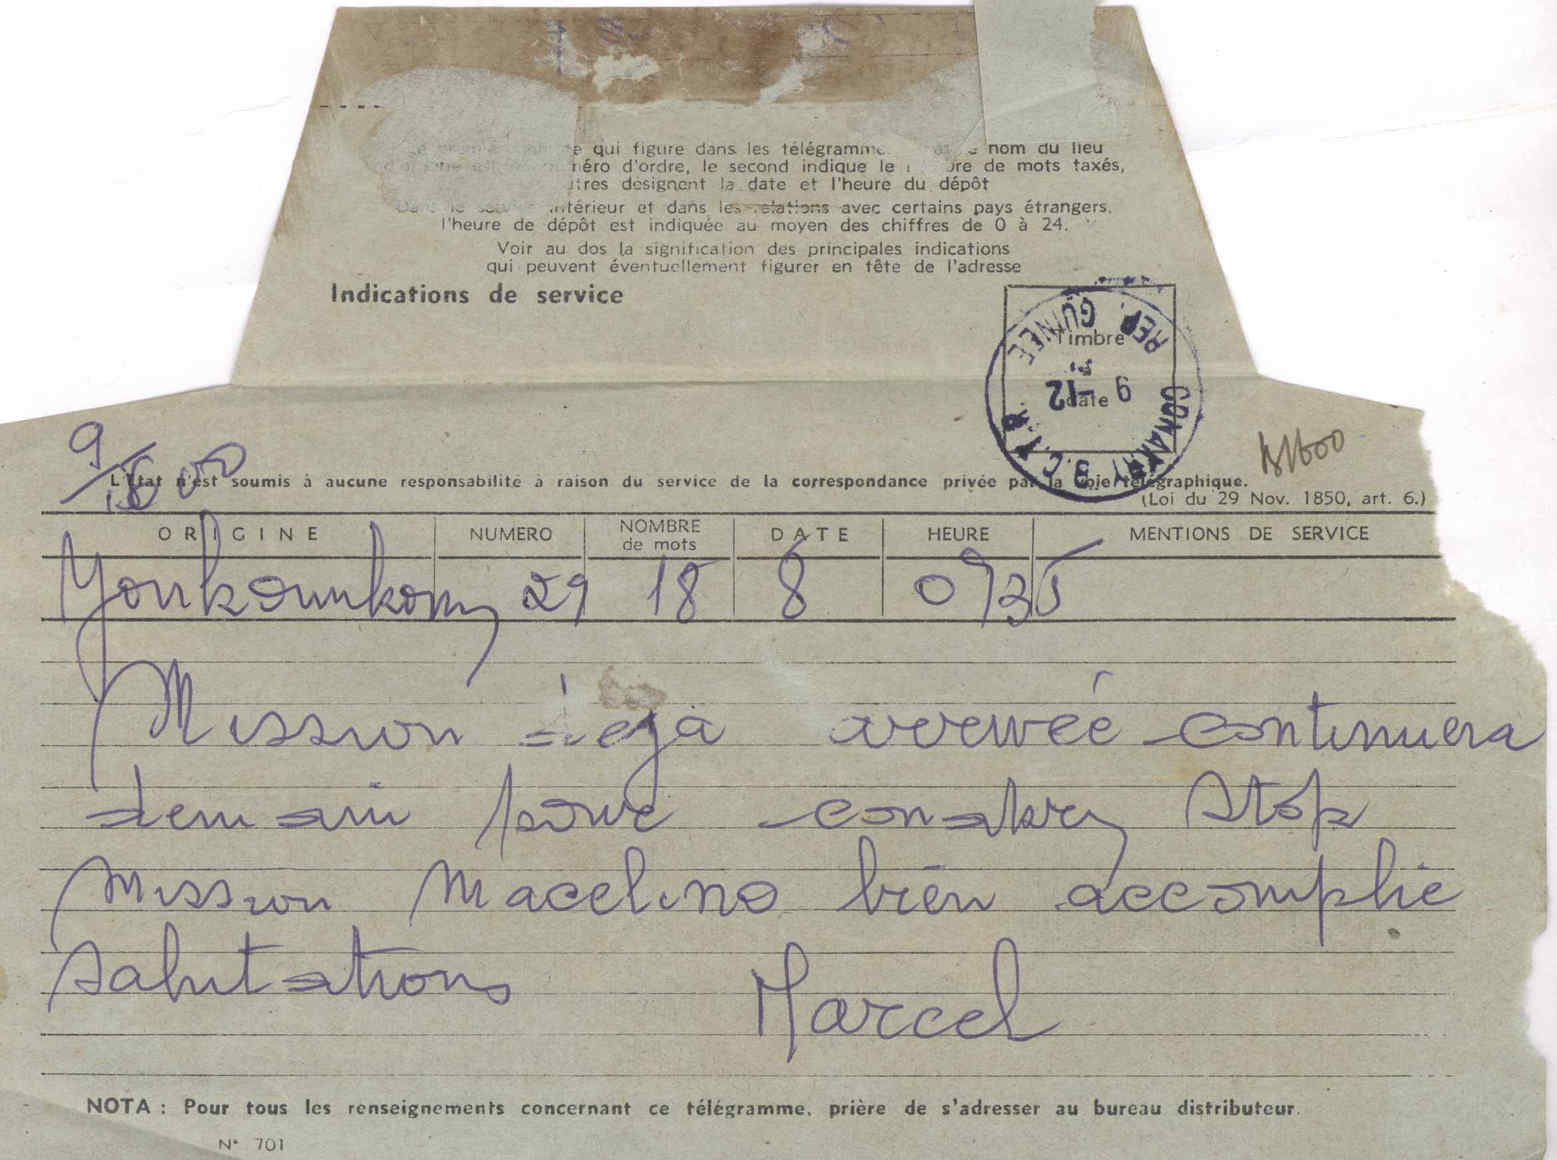 qui figure dans les télégrammes nom du lieu
numéro d'ordre, le second indique le de mots taxés,
designent la date et l'heure du dépôt
intérieur et dans les relations avec certains pays étrangers,
l'heure de dépôt est indiquée au moyen des chiffres de 0 à 24.
Voir au dos la signification des principales indications
qui peuvent éventuellement figurer en tête de l'adresse
Indications de service
Timbre
date
REP. GUINEE
9 -12
CONAKRY
9/
L'Etat n'est soumis à aucune responsabilité à raison du service de la correspondance privée par la voie télégraphique.
(Loi du 29 Nov. 1850, art. 6.)
ORIGINE NUMERO NOMBRE de mots DATE HEURE MENTIONS DE SERVICE
Youkounkoun 29 18 8 0935
Mission déjà arrivée continuera
demain pour conakry stop
mission Macelino bien accomplie
salutations Marcel
NOTA : Pour tous les renseignements concernant ce télégramme, prière de s'adresser au bureau distributeur.
N° 701